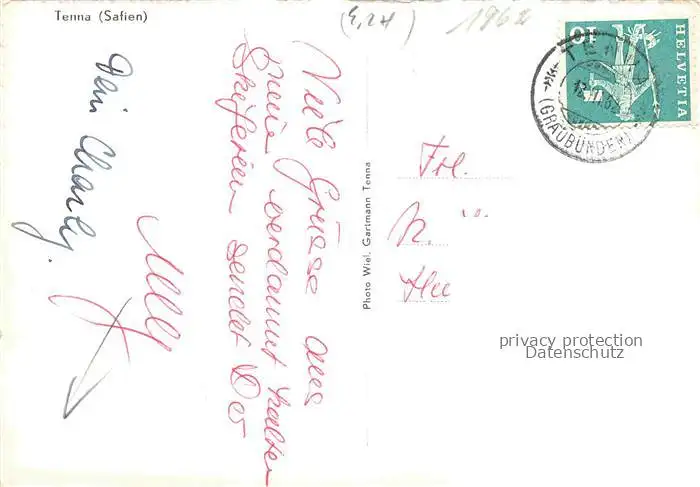 Tenna (Safien)
(E, 2H)
1962
HELVETIA
10
TENNA
(GRAUBÜNDEN)
Viele Grüsse aus
meine verdammt kalten
Skiferien sendet Dir
Dein Charly.
Photo Wiel. Gartmann Tenna
Frl.
privacy protection
Datenschutz